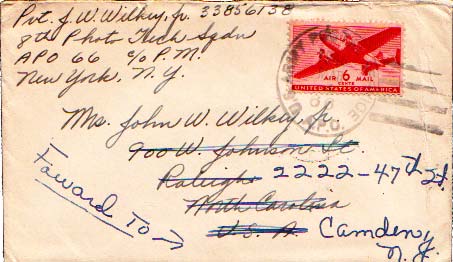 Pvt. J. W. Wilkey, Jr. 33856138
8th Photo Tech Sqdn
APO 66 c/o P.M.
New York, N.Y.
AIR 6 MAIL
CENTS
UNITED STATES OF AMERICA
A.P.O.
Ms. John W. Wilkey, Jr.
900 W. Johnson St
Raleigh 2222-47th St.
North Carolina
U.S.A. Camden,
N.J.
Foward To